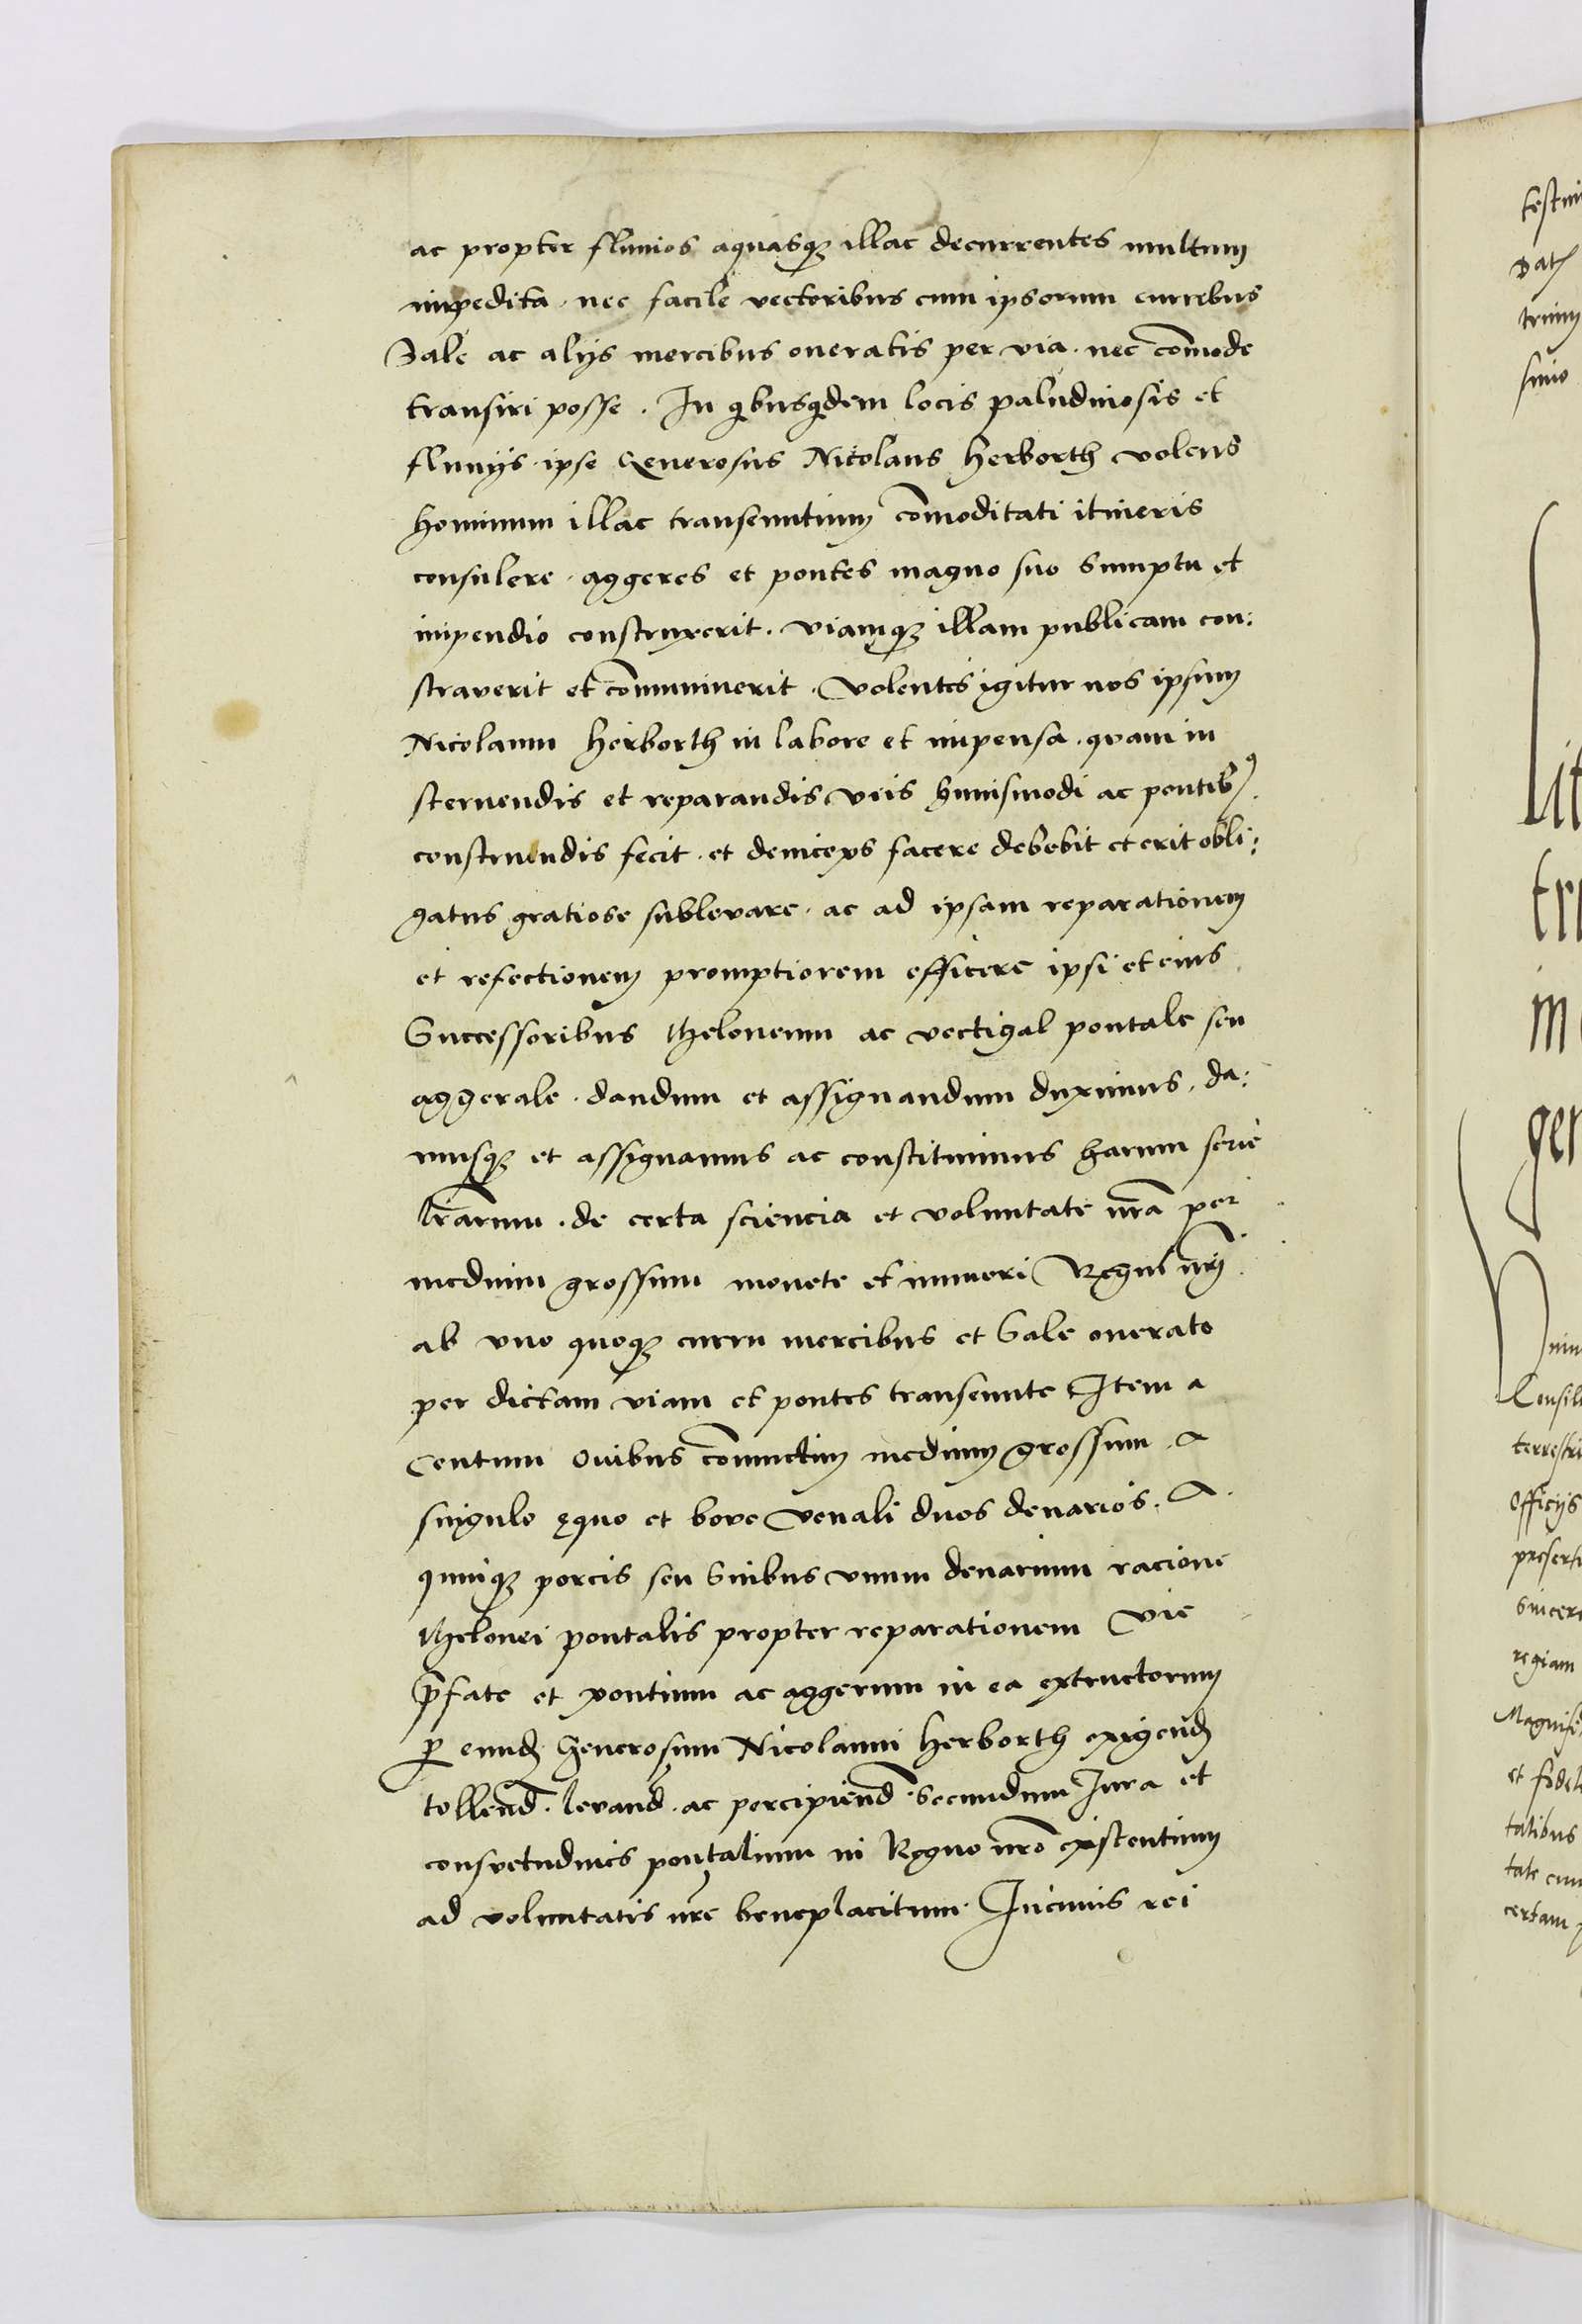 ac propter fluuios aquasq₃ illac decurrentes multum
impedita. nec facile vectoribus cum ipsorum curribus
Sale ac alijs mercibus oneratis per via. nec com̄ode
transiri posse. In qibusqidem locis paludinosis et
fluuijs. ipse Generosus Nicolaus Herborth volens
hominum illac transeuntium com̄oditati itineris
consulere. aggeres et pontes magno suo sumptu et
impendio construxerit. viamq₃ illam publicam con:
straverit et com̄uniuerit. Volentes igitur nos ipsum
Nicolaum Herborth in labore et impensa. quam in
sternendis et reparandis viis huiusmodi ac pontib⁹
construendis fecit. et deinceps facere debebit et erit obli:
gatus gratiose sublevare. ac ad ipsam reparationem
et refectionem promptiorem efficere ipsi et eius
Successoribus theloneum ac vectigal pontale seu
aggerale. dandum et assignandum duximus. da:
musq₃ et assignamus ac constituimus harum serie
lr̄arum. de certa sciencia et voluntate nr̄a per
medium grossum monete et numeri Regni nr̄i
ab vno quoq₃ curru mercibus et Sale onerato
per dictam viam et pontes transeunte Item a
Centum ovibus com̄unctim medium grossum. A
singulo equo et bove venali duos denarios. A.
quinq₃ porcis seu Suibus vnum denarium racione
thelonei pontalis propter reparationem vie
p̄fate et pontium ac aggerum in ea extructorum
p̱ eund̄ Generosum Nicolaum Herborth exigend̄
tollend̄. levand̄. ac percipiend̄. Secundum Iura et
consvetudines pontalium in Regno nr̄o existentium
ad voluntatis nr̄e beneplacitum. In cuius rei
testim
Dat
trium
simo
Lit
in
ger
Consili
terrestri
officijs
preserti
Sincere
regiam
Magnifi
et fideli
talibus
tate cum
certam